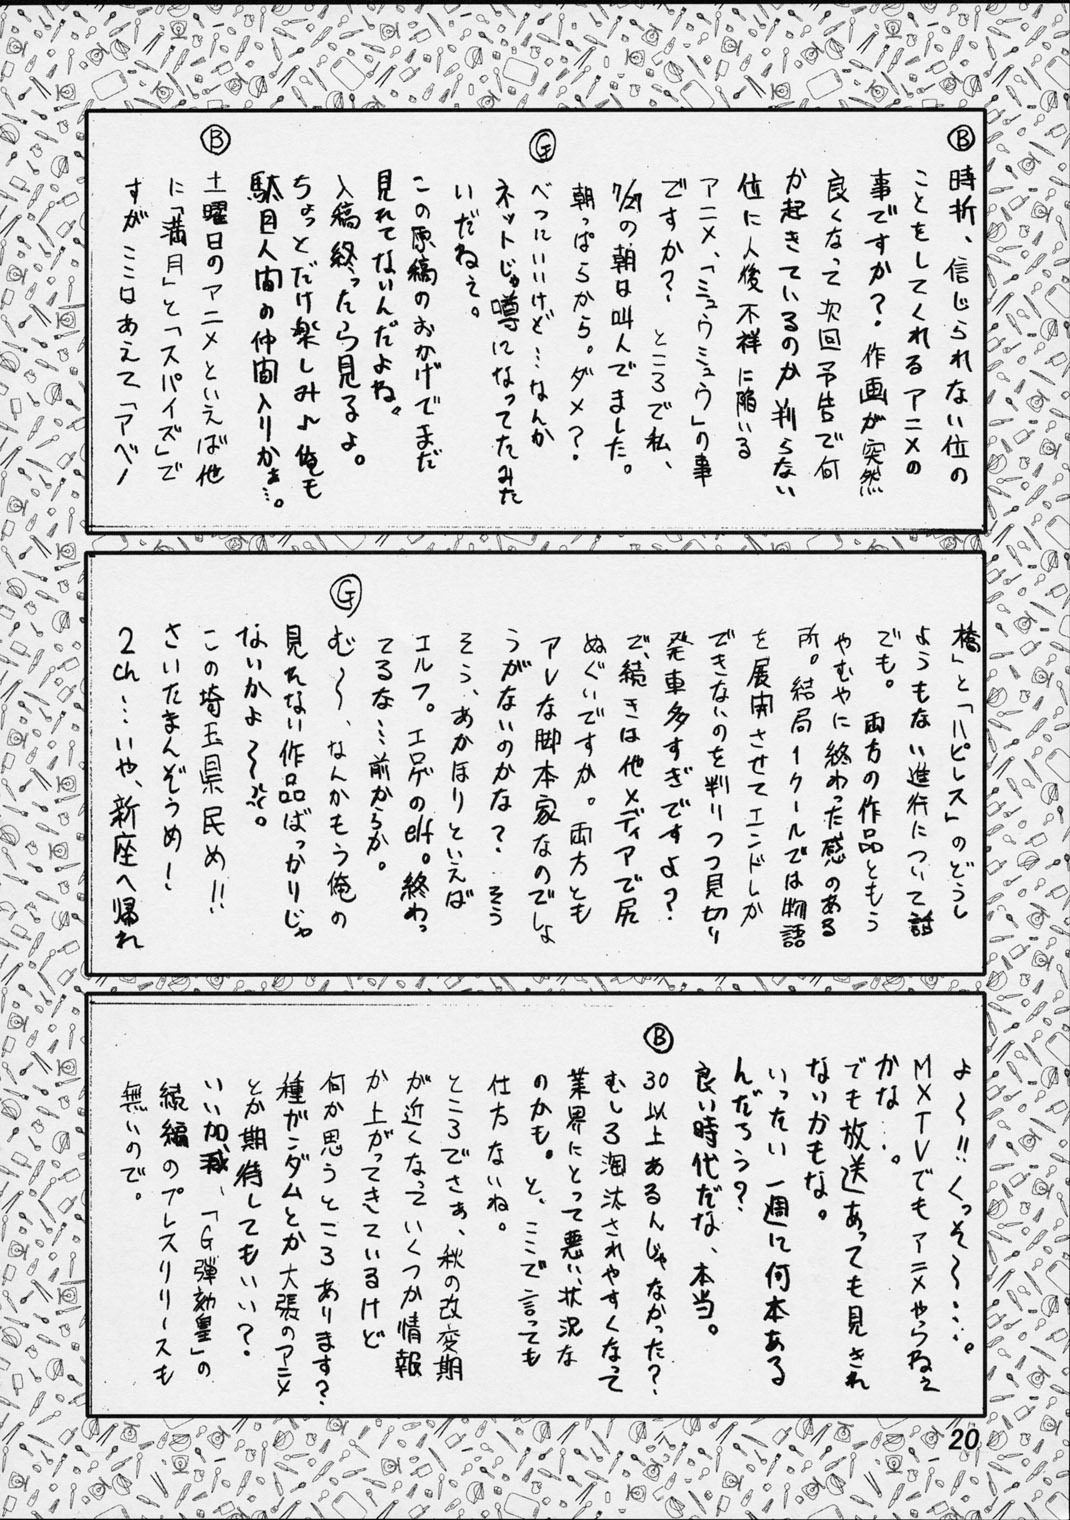 Ⓑ時折、信じられない位の
ことをしてくれるアニメの
事ですか？作画が突然
良くなって次回予告で何
が起きているのか判らない
位に人後不祥に陥いる
アニメ、「ミュウミュウ」の事
ですか？ところで私、
7/27の朝は叫んでました。
朝っぱらから。ダメ？
Ⓖべつにいいけど…なんか
ネットじゃ噂になってたみた
いだねぇ。
この原稿のおかげでまだ
見れてないんだよね。
入稿終ったら見るよ。
ちょっとだけ楽しみ♪俺も
駄目人間の仲間入りかぁ…。
Ⓑ土曜日のアニメといえば他
に「満月」と「スパイズ」で
すがここはあえて「アベノ
橋」と「ハピレス」のどうし
ようもない進行について話
でも。両方の作品ともう
やむやに終わった感のある
所。結局1クールでは物語
を展開させてエンドしか
できないのを判りつつ見切り
発車多すぎですよ？
で、続きは他メディアで尻
ぬぐいですか。両方とも
アレな脚本家なのでしょ
うがないのかな？そう
そう、あかほりといえば
エルフ。エロゲのelf。終わっ
てるな…前からか。
Ⓖむ〜、なんかもう俺の
見れない作品ばっかりじゃ
ないかよ〜。
この埼玉県民め!!
さいたまんぞうめ！
2ch…いや、新座へ帰れ
よ〜!!くっそ〜…。
MXTVでもアニメやらねぇ
かな…。
でも放送あっても見きれ
ないかもな。
いったい一週に何本ある
んだろう？
良い時代だな、本当。
Ⓑ30以上あるんじゃなかった？
むしろ淘汰されやすくなって
業界にとって悪い状況な
のかも。と、ここで言っても
仕方ないね。
ところでさぁ、秋の改変期
が近くなっていくつか情報
が上がってきているけど
何か思うところあります？
種ガンダムとか大張のアニメ
とか期待してもいい？
いい加減、「G弾効皇」の
続編のプレスリリースも
無いので。
20